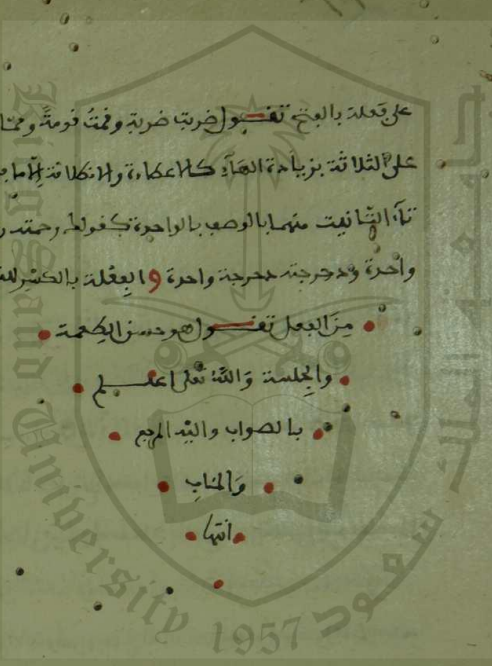 على فعلة بالفتح تقول ضربت ضربة وقمت قومة ومما
على الثلاثة بزيادة الهاء كالاعطاءة والانطلاقة إلا ما
تاء التانيث منهما بالوصف بالواحدة كقولك رحمته
واحدة ودحرجته دحرجة واحدة والفعلة بالكسر للنـ
من الفعل تقول هو حسن الطعمة
والجلسة والله تعلى اعلم
بالصواب واليه المرجع
والمئاب
انتها
جامعة الملك سعود
King Saud University
1957